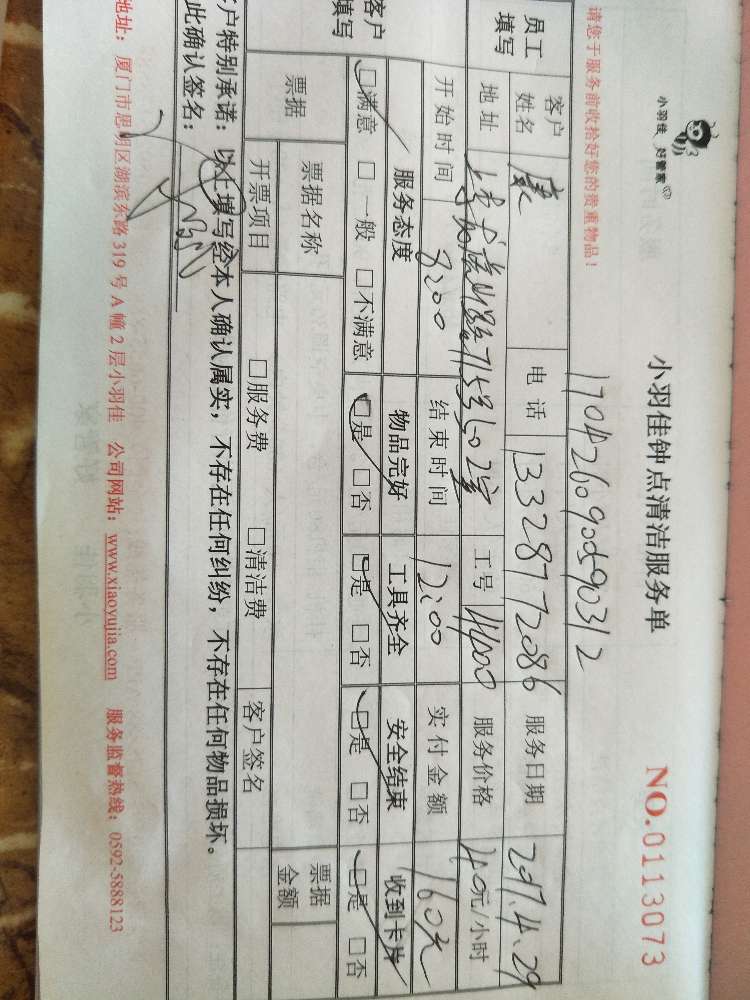 小羽佳 好管家
小羽佳钟点清洁服务单
NO.0113073
请您于服务前收拾好您的贵重物品！
员工填写
客户姓名
电话 13328772086
服务日期
地址
工号
服务价格 40元/小时
开始时间 8:00
结束时间 12:00
实付金额 160元
客户填写
服务态度 物品完好 工具齐全 安全结束 收到卡片
□满意 □一般 □不满意 □是 □否 □是 □否 □是 □否 □是 □否
票据 票据名称 票据金额
开票项目 □服务费 □清洁费 客户签名
户特别承诺：以上填写经本人确认属实，不存在任何纠纷，不存在任何物品损坏。
此确认签名：
地址：厦门市思明区湖滨东路 319 号 A 幢 2 层小羽佳 公司网站：www.xiaoyujia.com 服务监督热线：0592-5888123